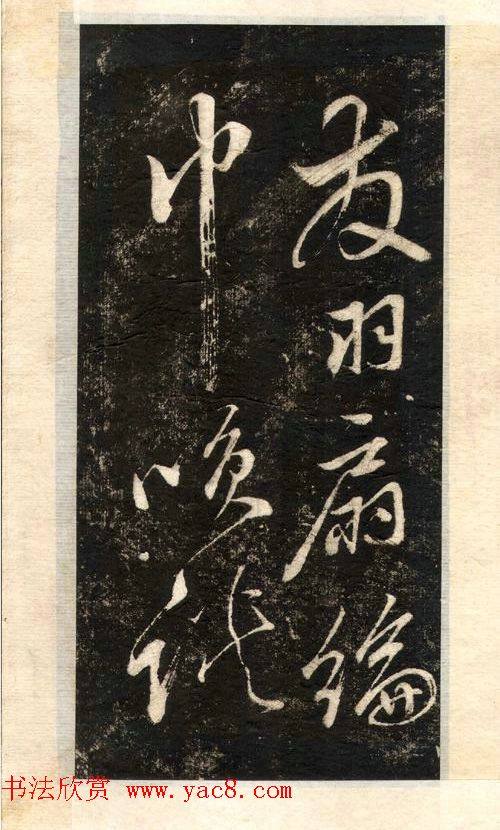 發羽扇綸
巾咲談
书法欣赏 www.yac8.com